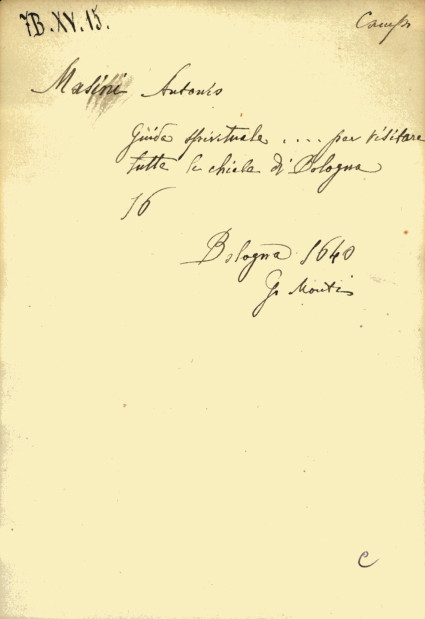 7B. XV. 15.
Camps
Masini Antonio
Guida spirituale .... per visitare
tutte le chiese di Bologna
16
Bologna 1640
G. Monti
C